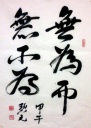 無為而
無不為
甲午